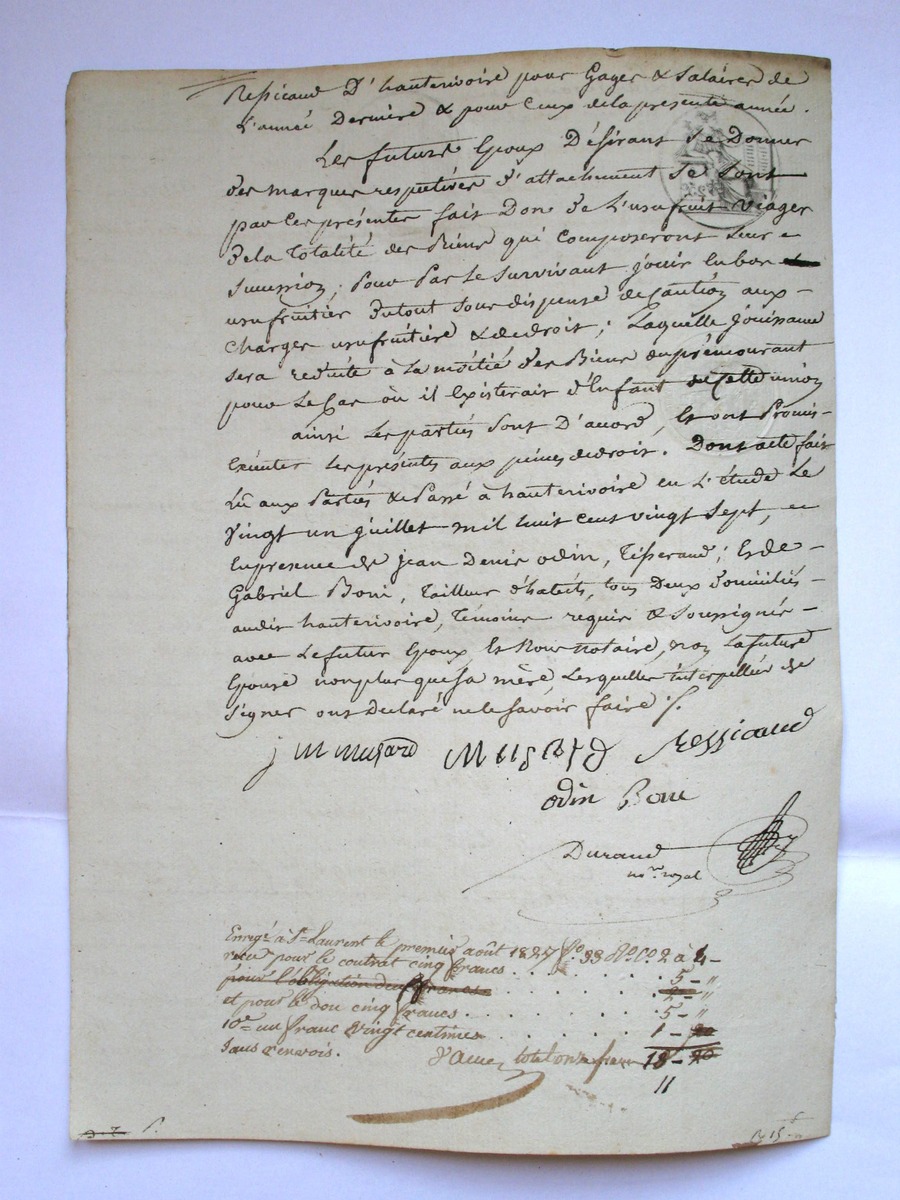 Ressicaud D'hauterivoire pour Gages & Salaires de
L'année Derniere & pour Ceux de la presente année.
Les futurs Epoux Désirant se Donner
des marques respectives d'attachement se sont
par Ces présentes fait Don de L'usufruit viager
de la Totalité des Biens qui Composeront leur
Succession, Pour Par Le Survivant jouir en bon
usufruitier du tout sous dispense de Caution aux
charges usufruitière & de droit; Laquelle jouissance
sera reduite à la moitié des Biens du prémourant
pour Le Cas où il Existerait d'Enfant de cette union
ainsi Les parties sont D'accord, Et ont Promis
Exécuter Les présentes aux peines de droit. Dont acte fait
Lû aux Parties & Passé à hauterivoire en L'étude Le
Vingt un juillet mil huit cent vingt Sept,
En presence de jean Denis odin, Tisserand; Et de
Gabriel Boni, Tailleur d'habits, tous Deux domiciliés
audit hauterivoire, Témoins requis & Soussignés
avec Le futur Epoux, Et Nous notaire, non La future
Epouse non plus que sa mère, Lesquelles interpellées de
Signer ont Déclaré ne le Savoir faire /.
j M musard Musard Ressicaud
odin Boni
Durand
no.re royal
Enregé à St Laurent le premier août 1827 fo. 33 Ro. Co. 2 à 4
reçu pour le contrat cinq francs . . . 5 - "
pour l'obligation deux francs . . . 2 - "
et pour le don cinq francs . . . 5 - "
10e un franc vingt centimes . . . 1 - 20
Sans renvois. total onze francs 13 - 20
11